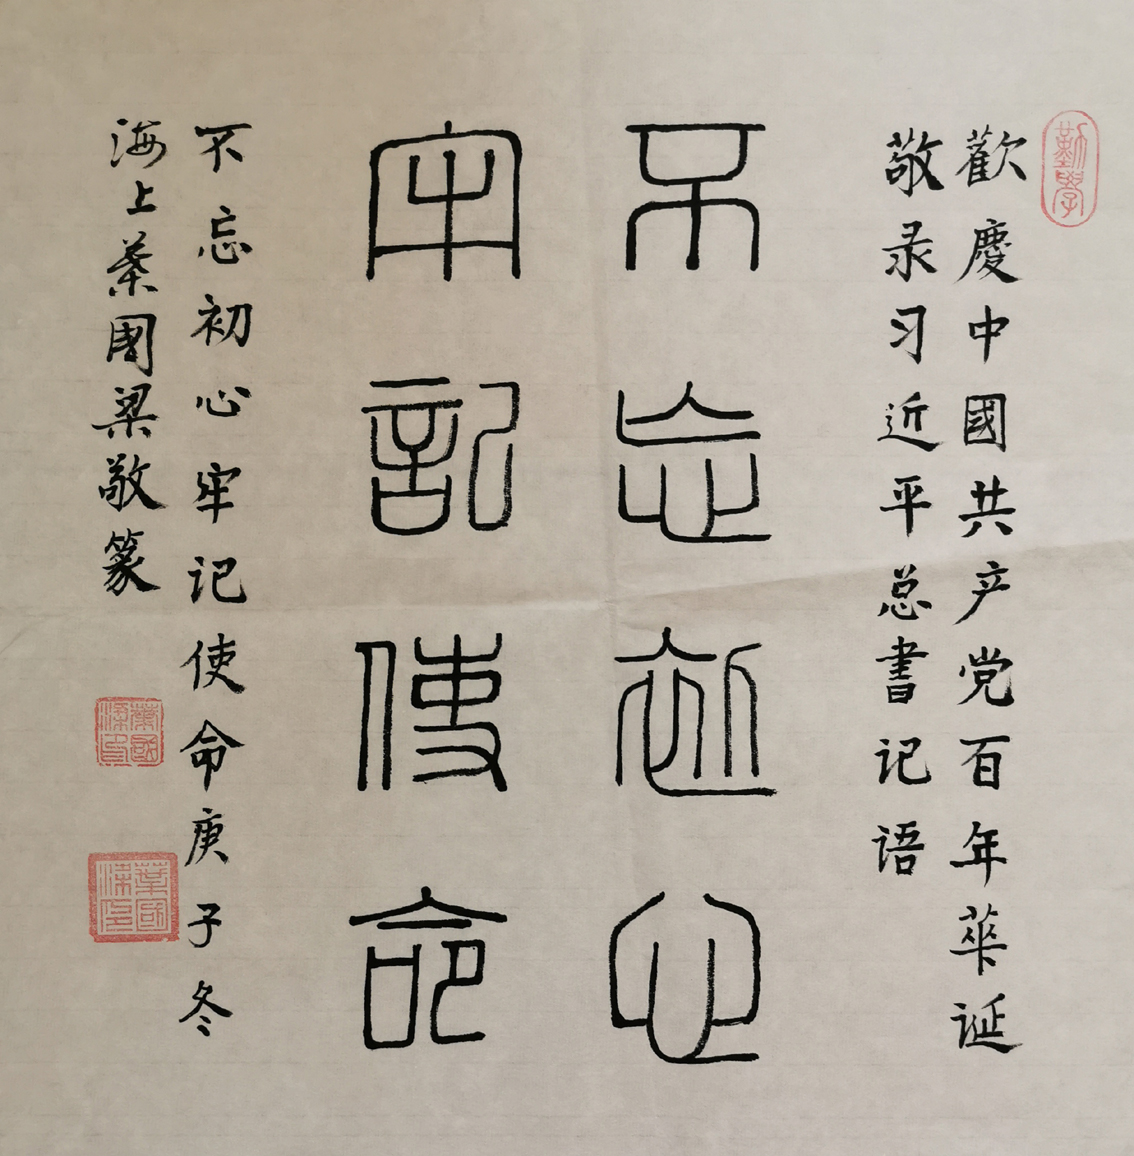 勤學
歡慶中國共产党百年華诞
敬录习近平总書记语
不忘初心
牢記使命
不忘初心牢记使命庚子冬
海上葉国梁敬篆
葉國梁印
葉國梁印